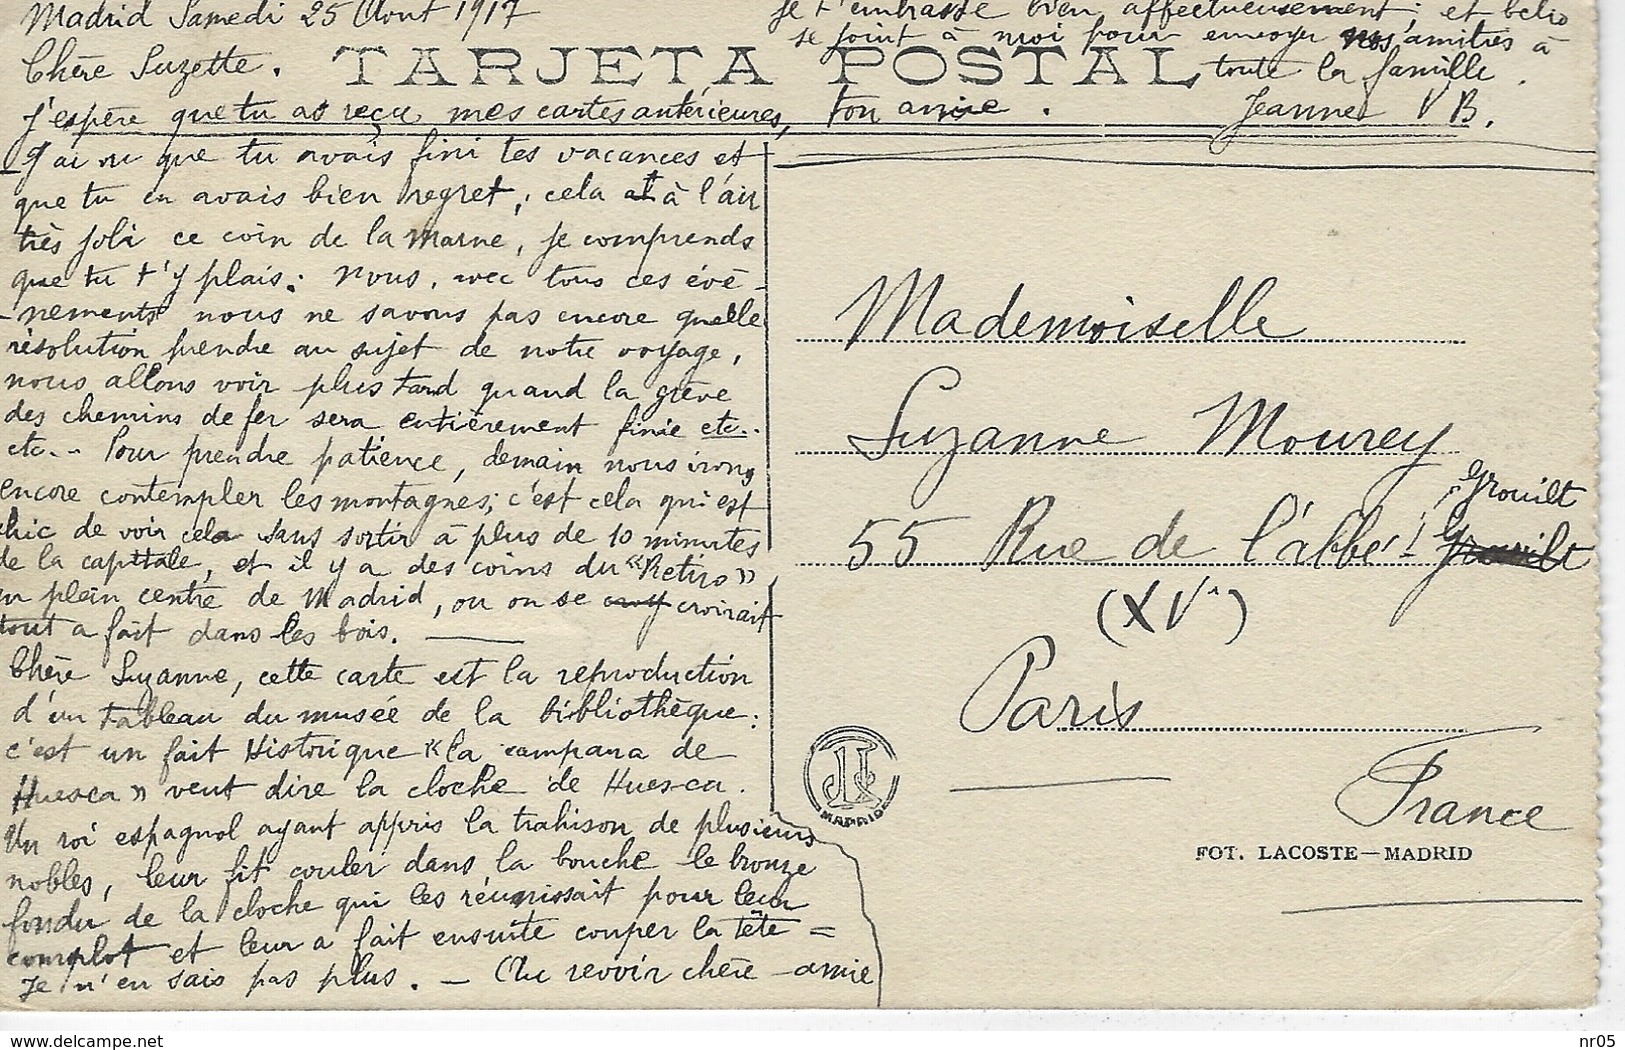 Madrid Samedi 25 Aout 1917
Chère Suzette.
TARJETA POSTAL
j'espère que tu as reçu mes cartes antérieures,
J'ai vu que tu avais fini tes vacances et
que tu en avais bien regret, cela a à l'air
très joli ce coin de la Marne, je comprends
que tu t'y plais. Nous, avec tous ces évè-
-nements nous ne savons pas encore quelle
résolution prendre au sujet de notre voyage,
nous allons voir plus tard quand la grève
des chemins de fer sera entièrement finie etc..
etc.. Pour prendre patience, demain nous irons
encore contempler les montagnes; c'est cela qui est
chic de voir cela sans sortir à plus de 10 minutes
de la capitale, et il y a des coins du "Retiro"
en plein centre de Madrid, ou on se croirait
tout a fait dans les bois. —
Chère Suzanne, cette carte est la reproduction
d'un tableau du musée de la Bibliothèque:
c'est un fait Historique "la campana de
Huesca" veut dire la cloche de Huesca.
Un roi espagnol ayant appris la trahison de plusieurs
nobles, leur fit couler dans la bouche le bronze
fondu de la cloche qui les réunissait pour leur
complot et leur a fait ensuite couper la tête =
Je n'en sais pas plus. - Au revoir chère amie
je t'embrasse bien affectueusement; et
se joint à moi pour envoyer nos amitiés à
toute la famille.
ton amie. Jeanne V B.
Mademoiselle
Suzanne Mourey
55 Rue de l'abbé-Groult
Groult
(XVe)
Paris
France
MADRID
FOT. LACOSTE—MADRID
delcampe.net
nr05